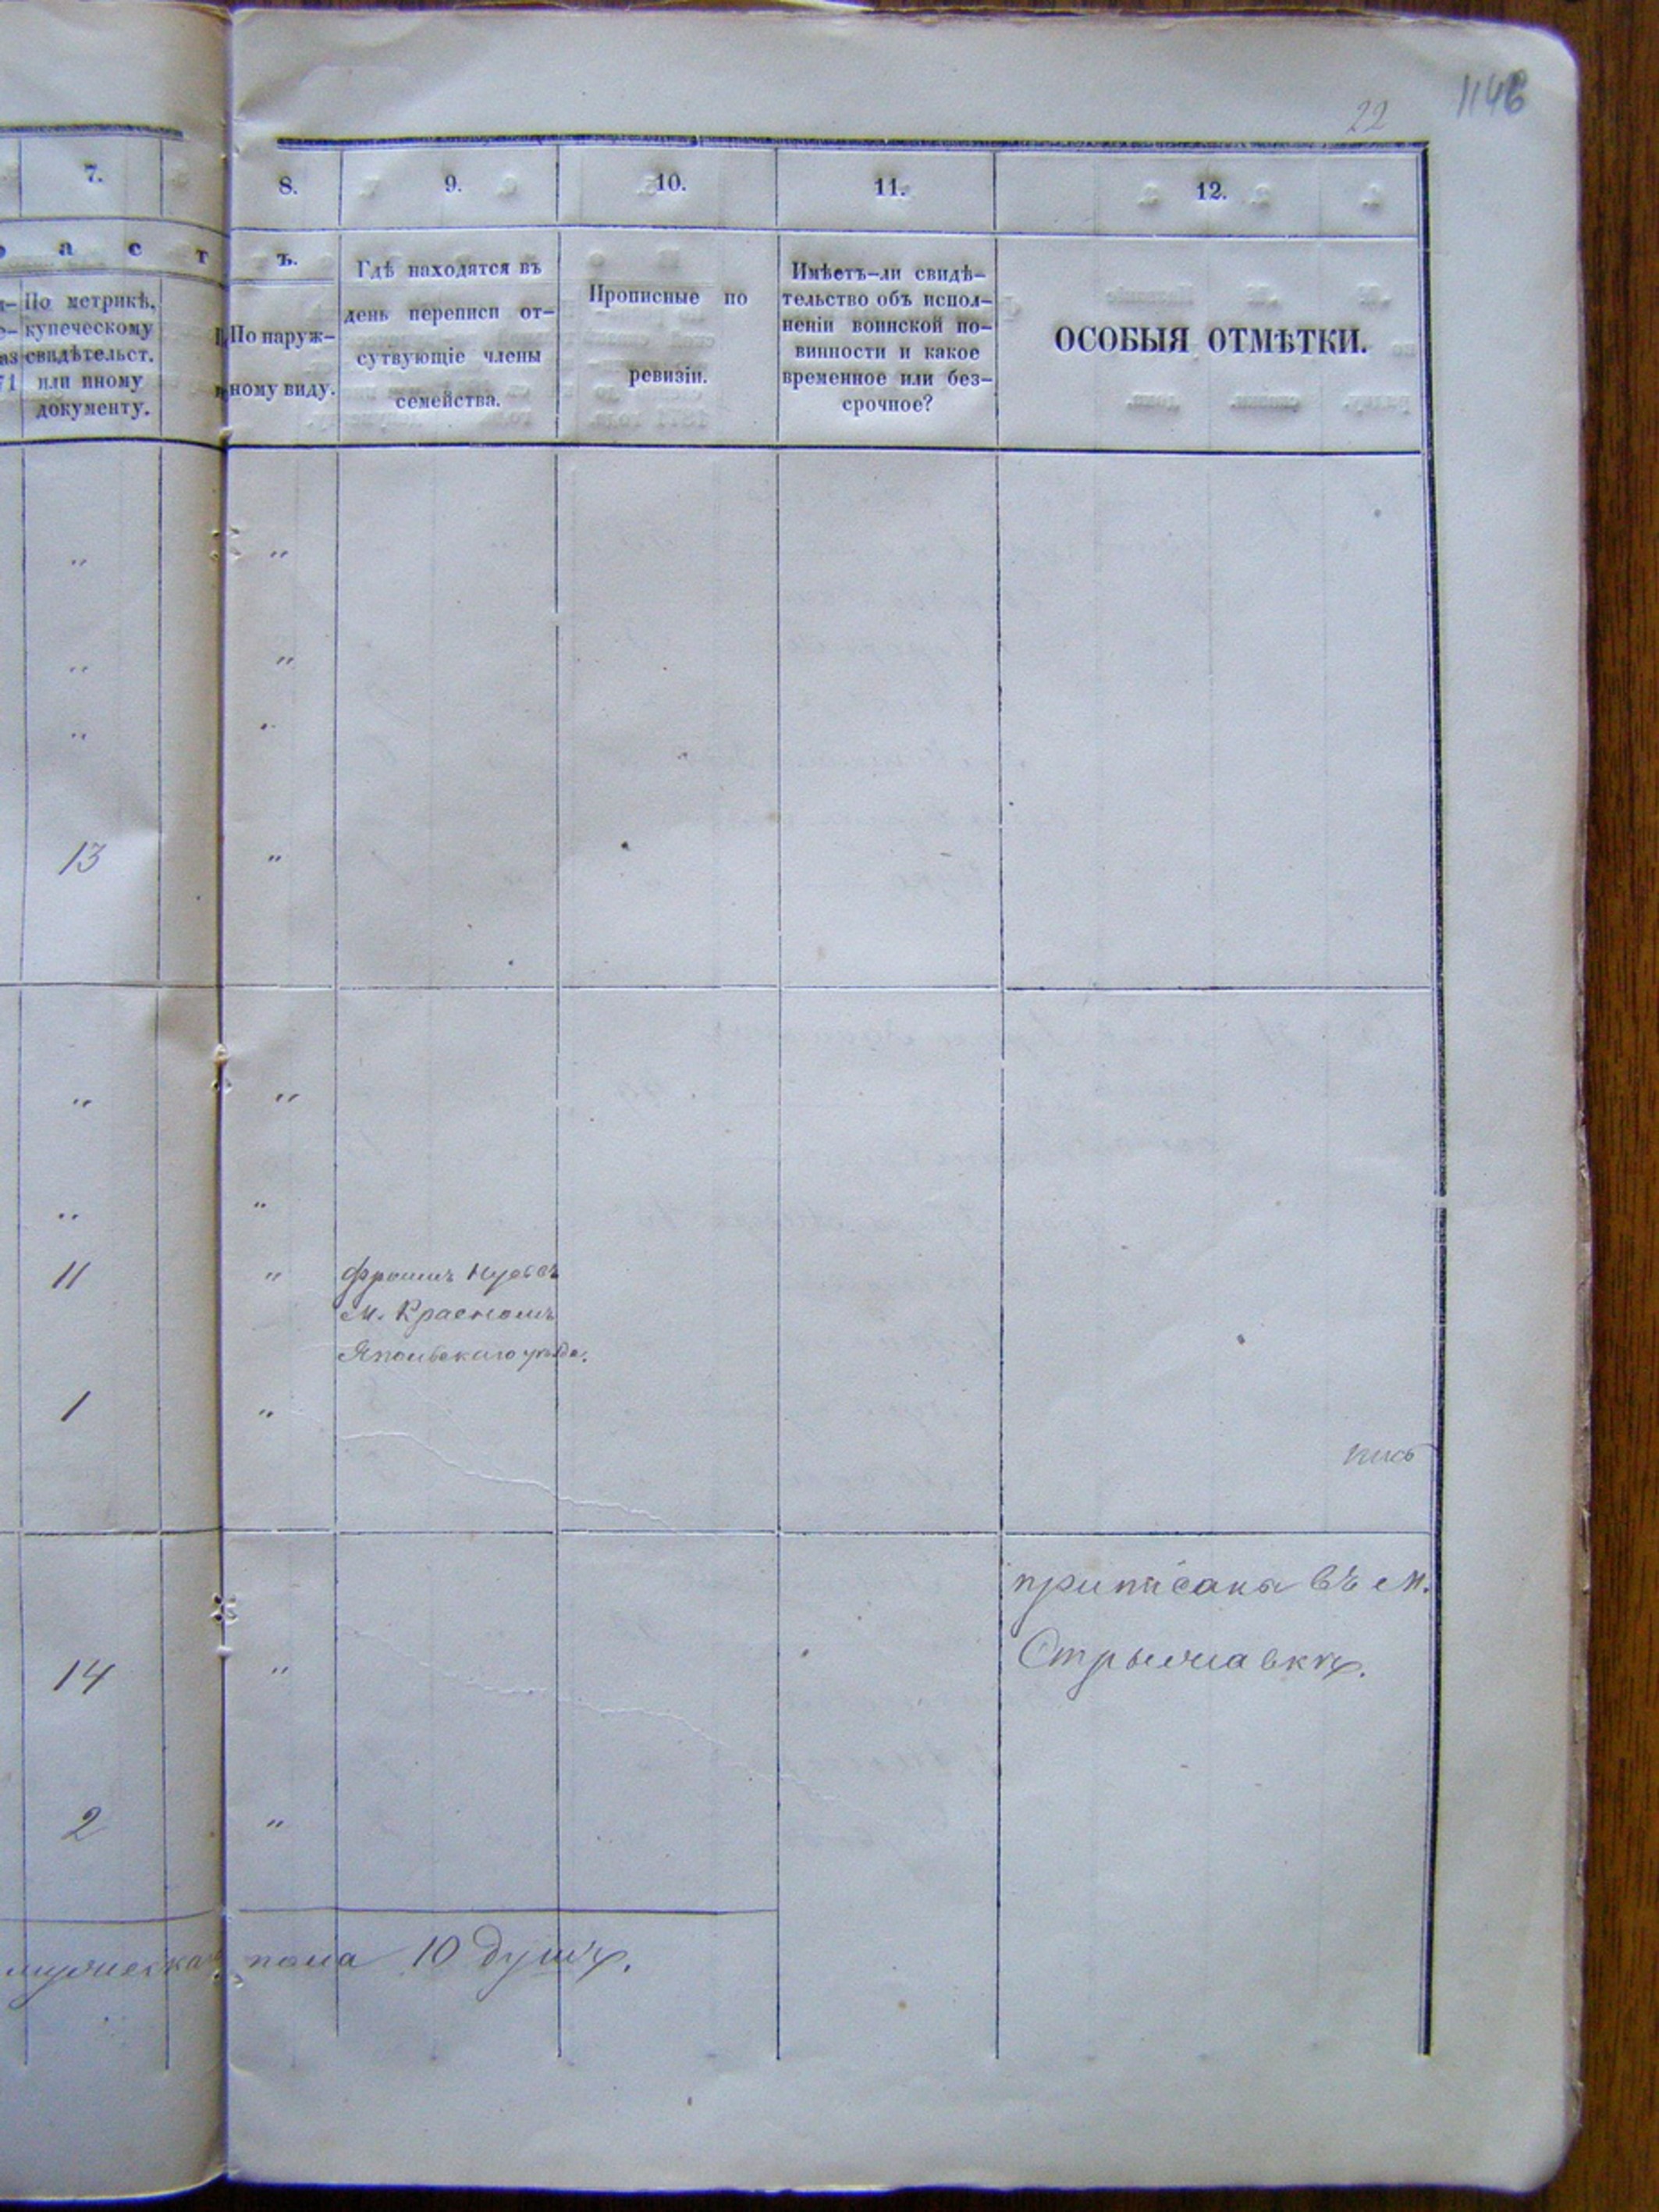 1146
22
7.
8.
9.
10.
11.
12.
а с т
ъ.
По метрикѣ,
купеческому
свидѣтельст.
или иному
документу.
По наруж-
ному виду.
Гдѣ находятся въ
день переписи от-
сутвующіе члены
семейства.
Прописные по
ревизіи.
Имѣетъ-ли свидѣ-
тельство объ испол-
неніи воинской по-
винности и какое
временное или без-
срочное?
ОСОБЫЯ ОТМѢТКИ.
„ „
„ „
„ „
13 „
„ „
„ „
11 „
м. Красномъ
Ямпольскаго уѣзда.
1 „
приписана въ м.
Стрыжавкѣ.
14 „
2 „
мужеска пола 10 душъ.